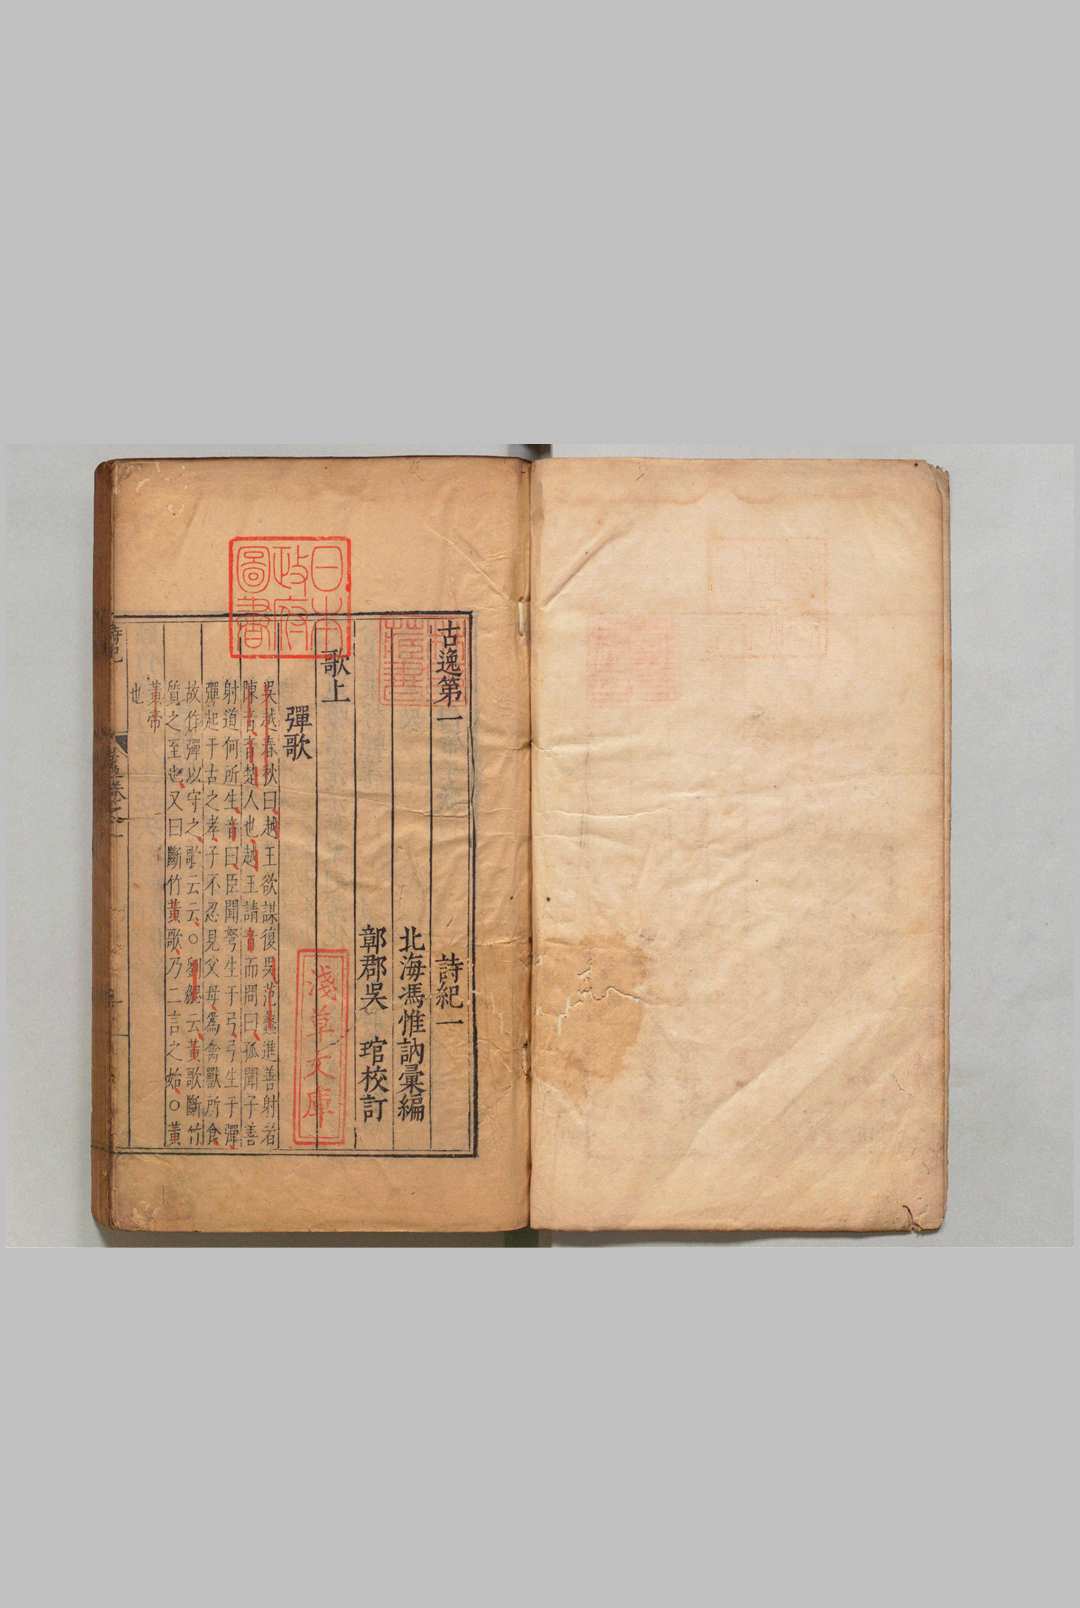 古逸第一
詩紀一
北海馮惟訥彙編
鄣郡吳 琯校訂
歌上
彈歌
吳越春秋曰越王欲謀復吳范蠡進善射者
陳音音楚人也越王請音而問曰孤聞子善
射道何所生音曰臣聞弩生于弓弓生于彈
彈起于古之孝子不忍見父母爲禽獸所食
故作彈以守之歌云云○劉勰云黃歌斷竹
質之至也又曰斷竹黃歌乃二言之始○黃
黃帝
也
日本
政府
圖書
淺草文庫